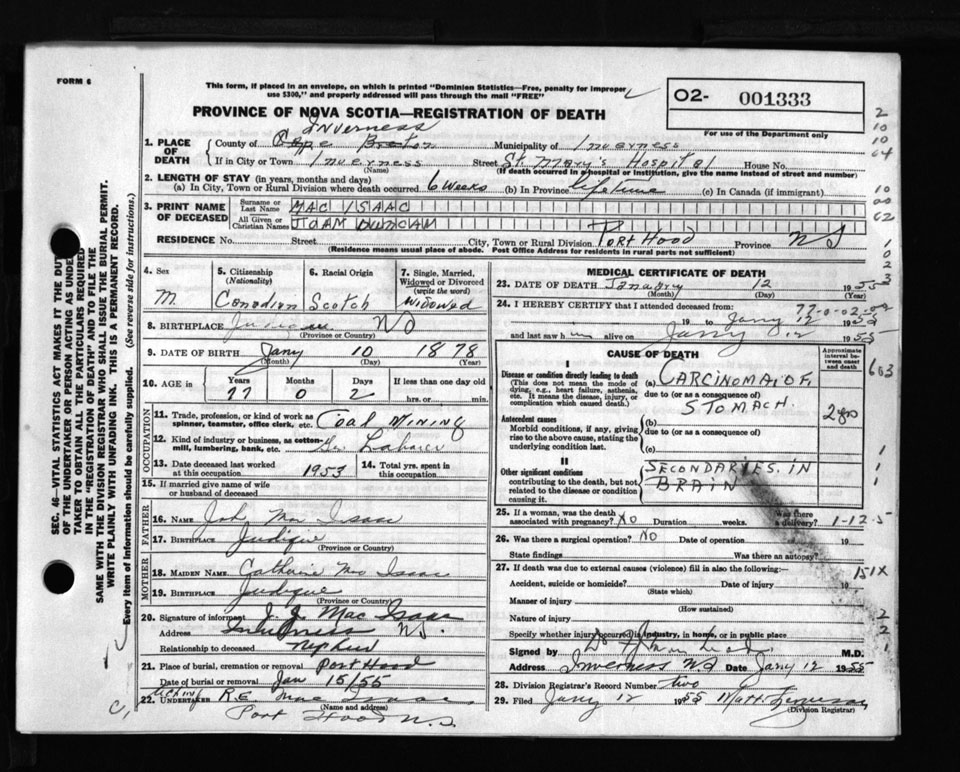 FORM 6
This form, if placed in an envelope, on which is printed "Dominion Statistics—Free, penalty for improper
use $300," and properly addressed will pass through the mail "FREE"
PROVINCE OF NOVA SCOTIA—REGISTRATION OF DEATH
O2- 001333
For use of the Department only
2
10
10
64
10
00
62
1
0
2
3
SEC. 46—VITAL STATISTICS ACT MAKES IT THE DUTY
OF THE UNDERTAKER OR PERSON ACTING AS UNDER-
TAKER TO OBTAIN ALL THE PARTICULARS REQUIRED
IN THE "REGISTRATION OF DEATH" AND TO FILE THE
SAME WITH THE DIVISION REGISTRAR WHO SHALL ISSUE THE BURIAL PERMIT.
WRITE PLAINLY WITH UNFADING INK. THIS IS A PERMANENT RECORD.
Every item of information should be carefully supplied. (See reverse side for instructions.)
Inverness
1. PLACE OF DEATH
County of Cape Breton Municipality of Inverness
If in City or Town Inverness Street St. Mary's Hospital House No.
(Name) (If death occurred in a hospital or institution, give the name instead of street and number)
2. LENGTH OF STAY (in years, months and days)
(a) In City, Town or Rural Division where death occurred 6 Weeks (b) In Province lifetime (c) In Canada (if immigrant)
3. PRINT NAME OF DECEASED
Surname or Last Name MAC ISAAC
All Given or Christian Names DUNCAN
RESIDENCE No. Street City, Town or Rural Division Port Hood Province NS
(Residence means usual place of abode. Post Office Address for residents in rural parts not sufficient)
4. Sex
M
5. Citizenship (Nationality)
Canadian
6. Racial Origin
Scotch
7. Single, Married, Widowed or Divorced (write the word)
Widowed
8. BIRTHPLACE NS
(Province or Country)
9. DATE OF BIRTH Jany 10 1878
(Month) (Day) (Year)
10. AGE in Years Months Days If less than one day old
77 0 2 hrs. or min.
OCCUPATION
11. Trade, profession, or kind of work as spinner, teamster, office clerk, etc. Coal Mining
12. Kind of industry or business, as cotton-mill, lumbering, bank, etc. Laborer
13. Date deceased last worked at this occupation 1953 14. Total yrs. spent in this occupation
15. If married give name of wife or husband of deceased
FATHER
16. NAME John Mac Isaac
17. BIRTHPLACE Judique
(Province or Country)
MOTHER
18. MAIDEN NAME Catherine Mac Isaac
19. BIRTHPLACE Judique
(Province or Country)
20. Signature of informant J. J. Mac Isaac
Address Inverness NS.
Relationship to deceased Nephew
21. Place of burial, cremation or removal Port Hood
Date of burial or removal Jan 15/55
Acting
22. UNDERTAKER R.E. Mac Isaac
(Name and address)
Port Hood N.S
MEDICAL CERTIFICATE OF DEATH
23. DATE OF DEATH January 12 1955
(Month) (Day) (Year)
24. I HEREBY CERTIFY that I attended deceased from:
77-0-02-
19 to Jany 12 1955
and last saw h alive on Jany 12 1955
CAUSE OF DEATH
Approximate interval between onset and death
603
I
Disease or condition directly leading to death
(This does not mean the mode of dying, e.g., heart failure, asthenia, etc. It means the disease, injury, or complication which caused death.)
(a) CARCINOMA OF
due to (or as a consequence of)
STOMACH.
Antecedent causes
Morbid conditions, if any, giving rise to the above cause, stating the underlying condition last.
(b)
due to (or as a consequence of)
(c)
1
1
1
II
Other significant conditions
contributing to the death, but not related to the disease or condition causing it.
SECONDARIES. IN
BRAIN
25. If a woman, was the death associated with pregnancy? No Duration weeks. Was there a delivery? 1-12-5
26. Was there a surgical operation? NO Date of operation 19
State findings Was there an autopsy?
27. If death was due to external causes (violence) fill in also the following:— 151X
Accident, suicide or homicide? Date of injury 19
(State which)
Manner of injury
(How sustained)
Nature of injury
Specify whether injury occurred in industry, in home, or in public place
2
2
1
Signed by M.D.
Address Inverness NS Date Jany 12 1955
28. Division Registrar's Record Number two
29. Filed Jany 12 1955 Matt.
(Division Registrar)